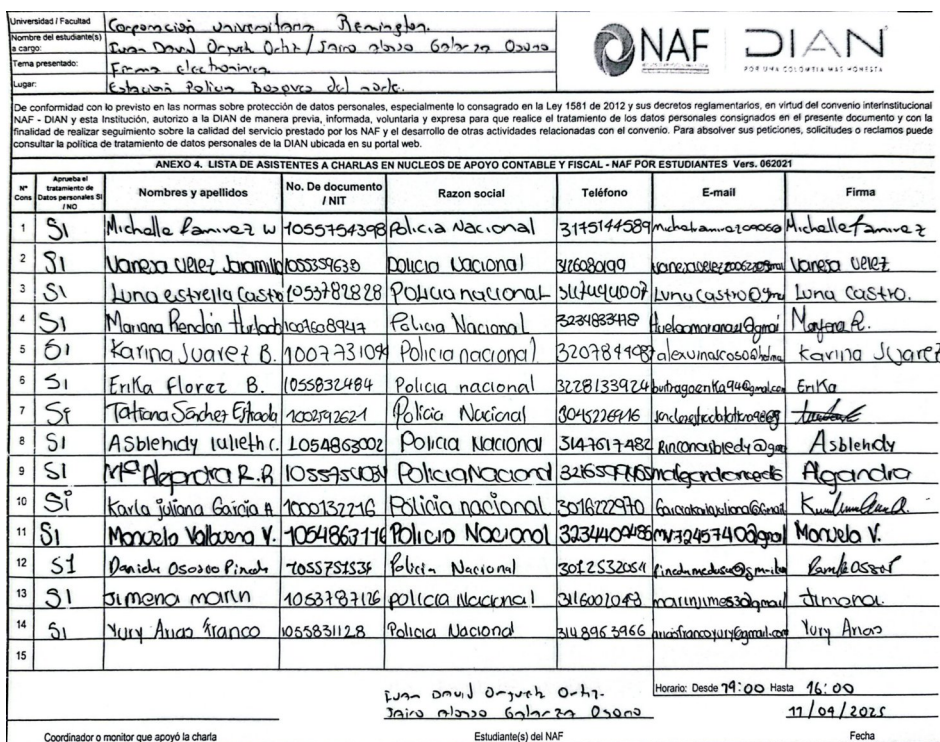 Universidad / Facultad Corporación universitaria Remington.
Nombre del estudiante(s) a cargo: Ivan David Ortiz / Jairo alonso Galarza Osorio
Tema presentado: Firma electronica
Lugar: Estación Policia Bosques del norte.
NAF DIAN
POR UNA COLOMBIA MÁS HONESTA
De conformidad con lo previsto en las normas sobre protección de datos personales, especialmente lo consagrado en la Ley 1581 de 2012 y sus decretos reglamentarios, en virtud del convenio interinstitucional
NAF - DIAN y esta Institución, autorizo a la DIAN de manera previa, informada, voluntaria y expresa para que realice el tratamiento de los datos personales consignados en el presente documento y con la
finalidad de realizar seguimiento sobre la calidad del servicio prestado por los NAF y el desarrollo de otras actividades relacionadas con el convenio. Para absolver sus peticiones, solicitudes o reclamos puede
consultar la política de tratamiento de datos personales de la DIAN ubicada en su portal web.
ANEXO 4. LISTA DE ASISTENTES A CHARLAS EN NUCLEOS DE APOYO CONTABLE Y FISCAL - NAF POR ESTUDIANTES Vers. 062021
N° Cons Aprueba el tratamiento de Datos personales SI / NO Nombres y apellidos No. De documento / NIT Razon social Teléfono E-mail Firma
1 Si Michelle Ramirez W 1055754398 Policia Nacional 3175144589 Michelle Ramirez
2 Si Vanesa Velez Jaramillo 1055359638 Policia Nacional 3126080199 Vanesa Velez
3 Si Luna estrella Castro 1053782828 Policia nacional Luna Castro.
4 Si Mariana Rendón Hurtado Policia Nacional 3234833418
5 Si Karina Juarez B. 1007731094 Policia nacional 3207844087 Karina Juarez
6 Si Erika Florez B. 1055832484 Policia nacional 3228133924 Erika
7 Si Tatiana Sánchez Estrada 1002592621 Policia Nacional 3045226916
8 Si Asblehidy Iulieth C. 1054863002 Policia Nacional 3147617482 Asblehidy
9 Si Mª R.R Policia Nacional
10 Si Karla juliana Garcia A 1000132216 Policia nacional. 3016222970
11 Si Manuela Valbuena V. 1054863116 Policia Nacional 3234409486 Manuela V.
12 SI Policia Nacional 3012532054
13 SI Jimena marin 1053787126 policia Nacional 3116002043 Jimena.
14 Si Yury Arias Franco 1055831128 Policia Nacional 3148963966 ariasfrancoyury@gmail.com Yury Arias
15
Ivan David Ortiz.
Jairo alonso Galarza Osorio
Horario: Desde 14:00 Hasta 16:00
11/04/2025
Coordinador o monitor que apoyó la charla Estudiante(s) del NAF Fecha